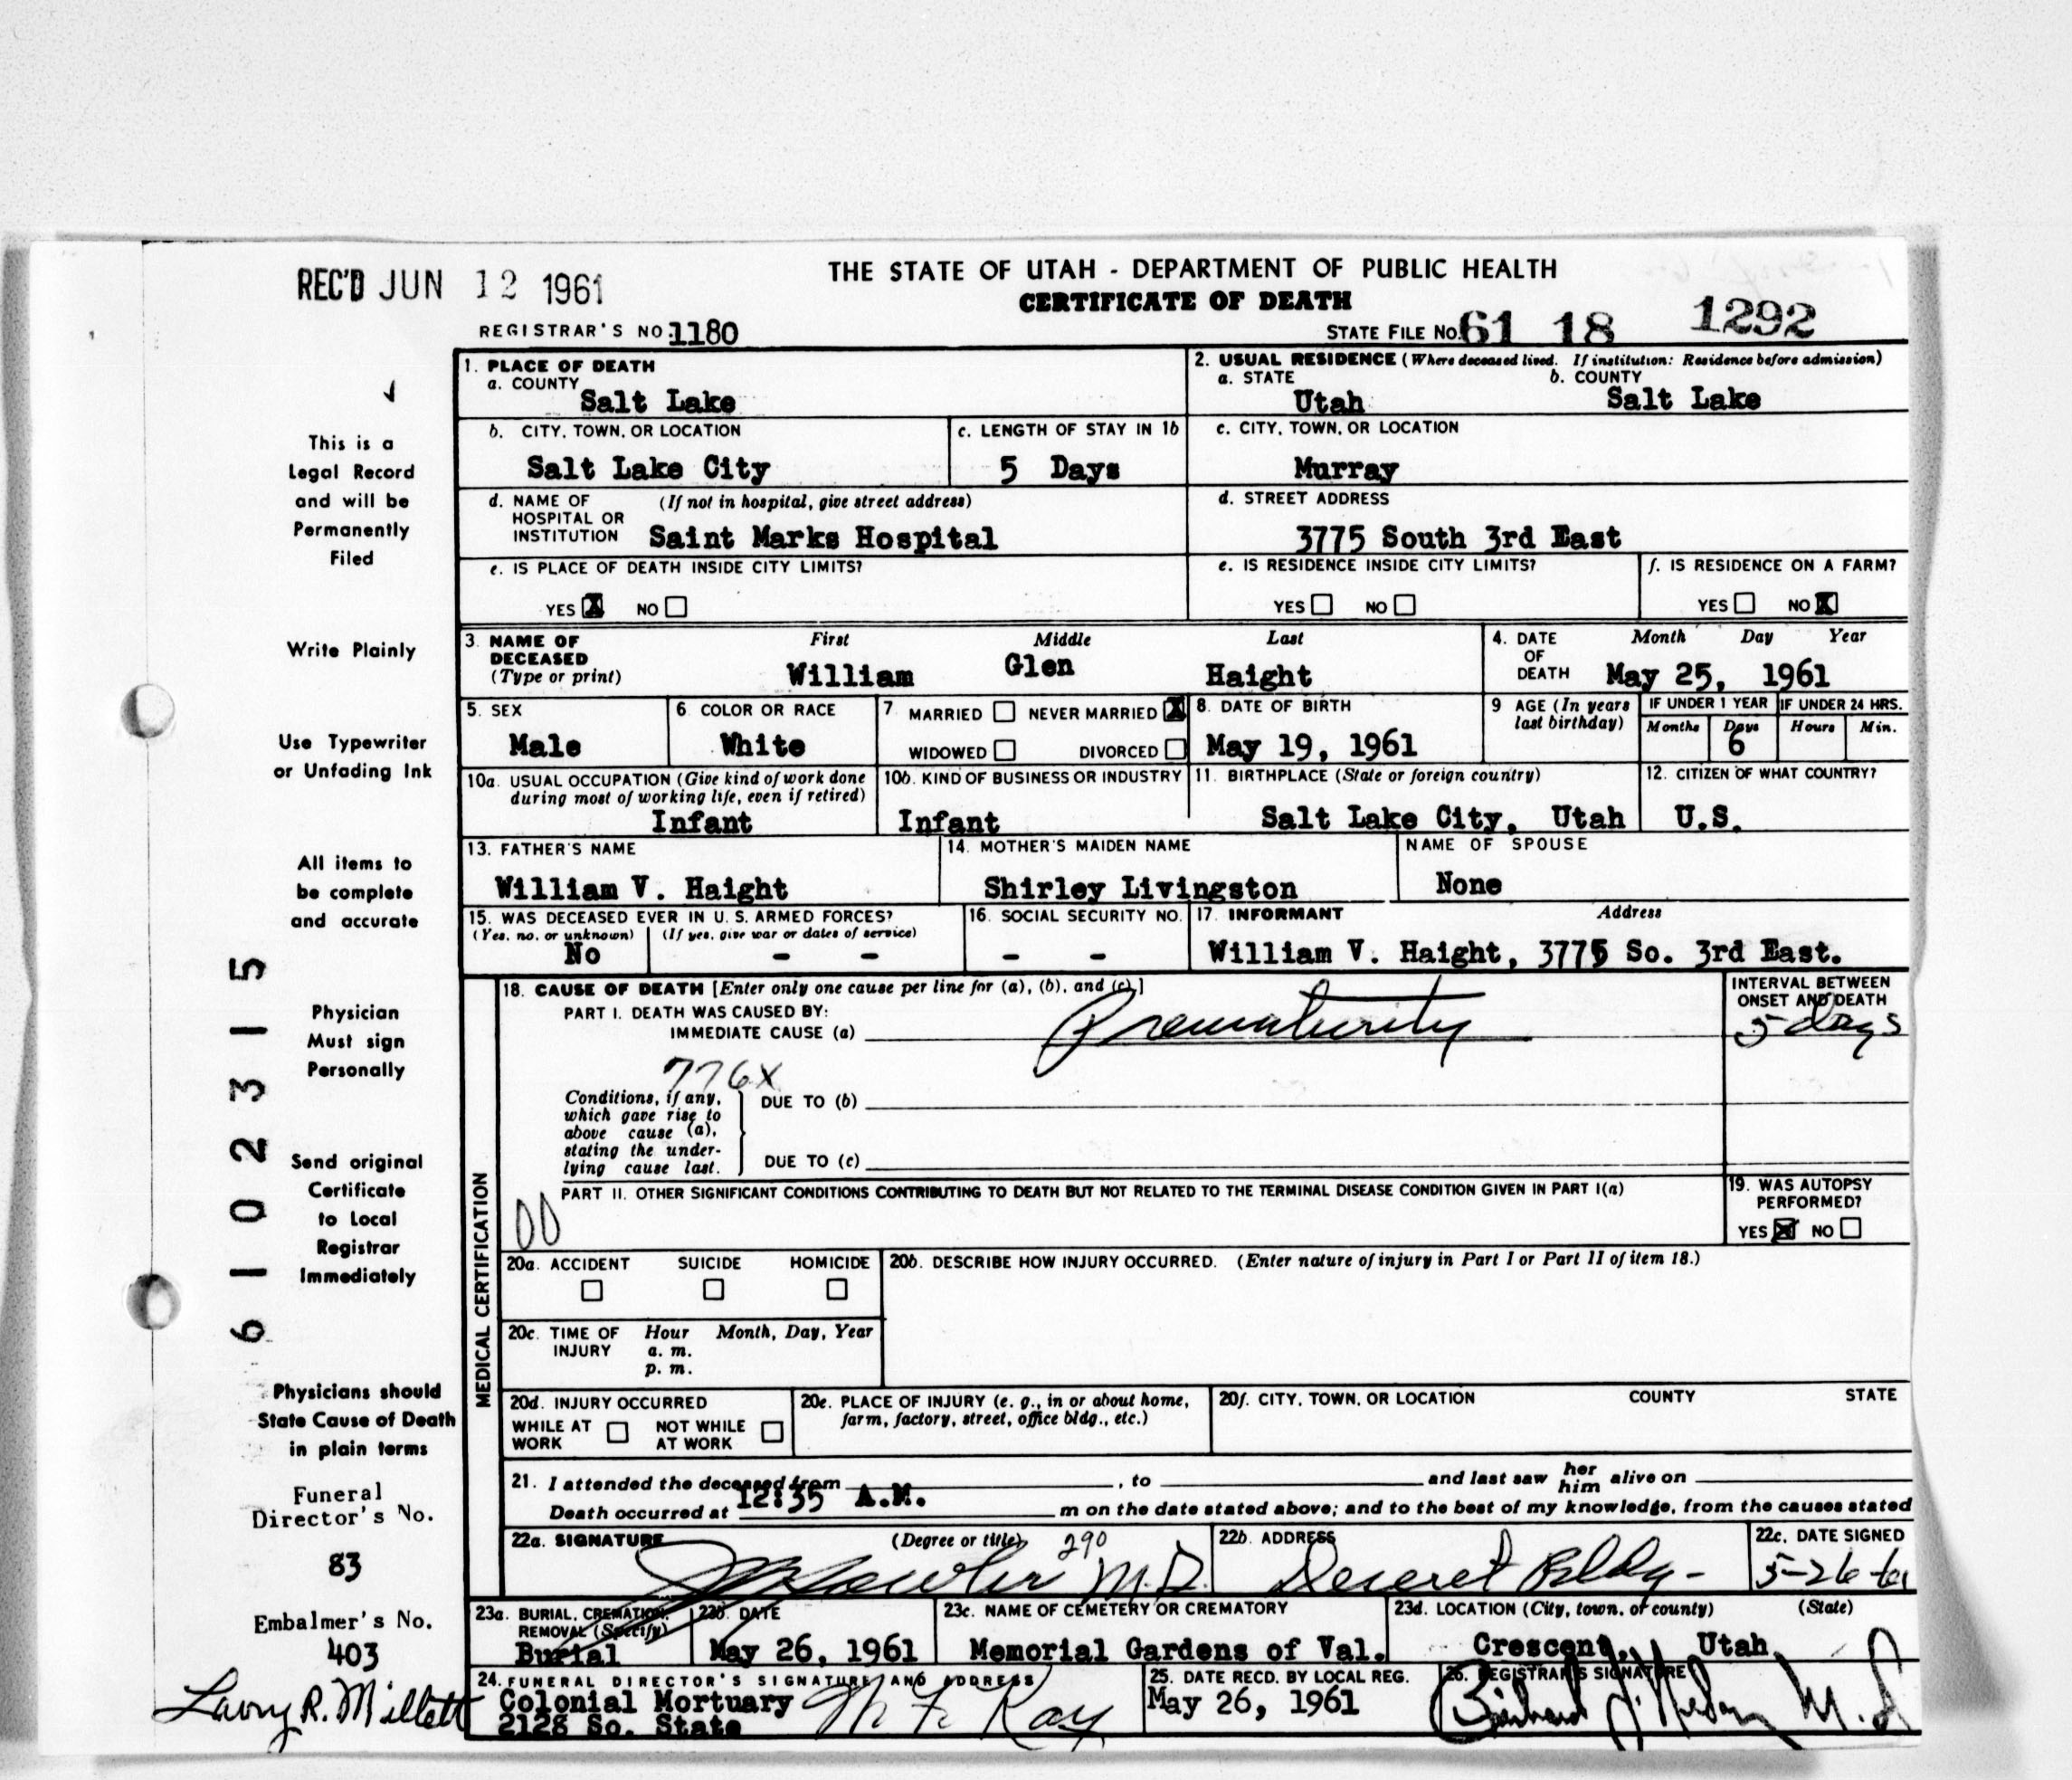 REC'D JUN 12 1961
THE STATE OF UTAH - DEPARTMENT OF PUBLIC HEALTH
CERTIFICATE OF DEATH
REGISTRAR'S NO. 1180
STATE FILE NO. 61 18 1292
This is a
Legal Record
and will be
Permanently
Filed
Write Plainly
Use Typewriter
or Unfading Ink
All items to
be complete
and accurate
Physician
Must sign
Personally
Send original
Certificate
to Local
Registrar
Immediately
Physicians should
State Cause of Death
in plain terms
Funeral
Director's No.
83
Embalmer's No.
403
Larry R. Millett
6102315
1. PLACE OF DEATH
a. COUNTY
Salt Lake
2. USUAL RESIDENCE (Where deceased lived. If institution: Residence before admission)
a. STATE b. COUNTY
Utah Salt Lake
b. CITY, TOWN, OR LOCATION
Salt Lake City
c. LENGTH OF STAY IN 1b
5 Days
c. CITY, TOWN, OR LOCATION
Murray
d. NAME OF (If not in hospital, give street address)
HOSPITAL OR
INSTITUTION Saint Marks Hospital
d. STREET ADDRESS
3775 South 3rd East
e. IS PLACE OF DEATH INSIDE CITY LIMITS?
YES X NO
e. IS RESIDENCE INSIDE CITY LIMITS?
YES NO
f. IS RESIDENCE ON A FARM?
YES NO X
3. NAME OF First Middle Last
DECEASED
(Type or print) William Glen Haight
4. DATE Month Day Year
OF
DEATH May 25, 1961
5. SEX
Male
6. COLOR OR RACE
White
7. MARRIED NEVER MARRIED X
WIDOWED DIVORCED
8. DATE OF BIRTH
May 19, 1961
9 AGE (In years
last birthday)
IF UNDER 1 YEAR IF UNDER 24 HRS.
Months Days Hours Min.
6
10a. USUAL OCCUPATION (Give kind of work done
during most of working life, even if retired)
Infant
10b. KIND OF BUSINESS OR INDUSTRY
Infant
11. BIRTHPLACE (State or foreign country)
Salt Lake City, Utah
12. CITIZEN OF WHAT COUNTRY?
U.S.
13. FATHER'S NAME
William V. Haight
14. MOTHER'S MAIDEN NAME
Shirley Livingston
NAME OF SPOUSE
None
15. WAS DECEASED EVER IN U. S. ARMED FORCES?
(Yes, no, or unknown) (If yes, give war or dates of service)
No - -
16. SOCIAL SECURITY NO.
- -
17. INFORMANT Address
William V. Haight, 3775 So. 3rd East.
MEDICAL CERTIFICATION
18. CAUSE OF DEATH [Enter only one cause per line for (a), (b), and (c).]
PART I. DEATH WAS CAUSED BY:
IMMEDIATE CAUSE (a) Prematurity
INTERVAL BETWEEN
ONSET AND DEATH
5 days
776X
Conditions, if any,
which gave rise to
above cause (a),
stating the under-
lying cause last.
DUE TO (b)
DUE TO (c)
PART II. OTHER SIGNIFICANT CONDITIONS CONTRIBUTING TO DEATH BUT NOT RELATED TO THE TERMINAL DISEASE CONDITION GIVEN IN PART I(a)
00
19. WAS AUTOPSY
PERFORMED?
YES X NO
20a. ACCIDENT SUICIDE HOMICIDE
20b. DESCRIBE HOW INJURY OCCURRED. (Enter nature of injury in Part I or Part II of item 18.)
20c. TIME OF Hour Month, Day, Year
INJURY a. m.
p. m.
20d. INJURY OCCURRED
WHILE AT NOT WHILE
WORK AT WORK
20e. PLACE OF INJURY (e. g., in or about home,
farm, factory, street, office bldg., etc.)
20f. CITY, TOWN, OR LOCATION COUNTY STATE
21. I attended the deceased from , to and last saw her him alive on
Death occurred at 12:35 A.M. m on the date stated above; and to the best of my knowledge, from the causes stated
22a. SIGNATURE (Degree or title) 290
M.D.
22b. ADDRESS
Deseret Bldg-
22c. DATE SIGNED
5-26-61
23a. BURIAL, CREMATION,
REMOVAL (Specify)
Burial
23b. DATE
May 26, 1961
23c. NAME OF CEMETERY OR CREMATORY
Memorial Gardens of Val.
23d. LOCATION (City, town, or county) (State)
Crescent, Utah
24. FUNERAL DIRECTOR'S SIGNATURE AND ADDRESS
Colonial Mortuary
2128 So. State
25. DATE RECD. BY LOCAL REG.
May 26, 1961
26. REGISTRAR'S SIGNATURE
M.D.